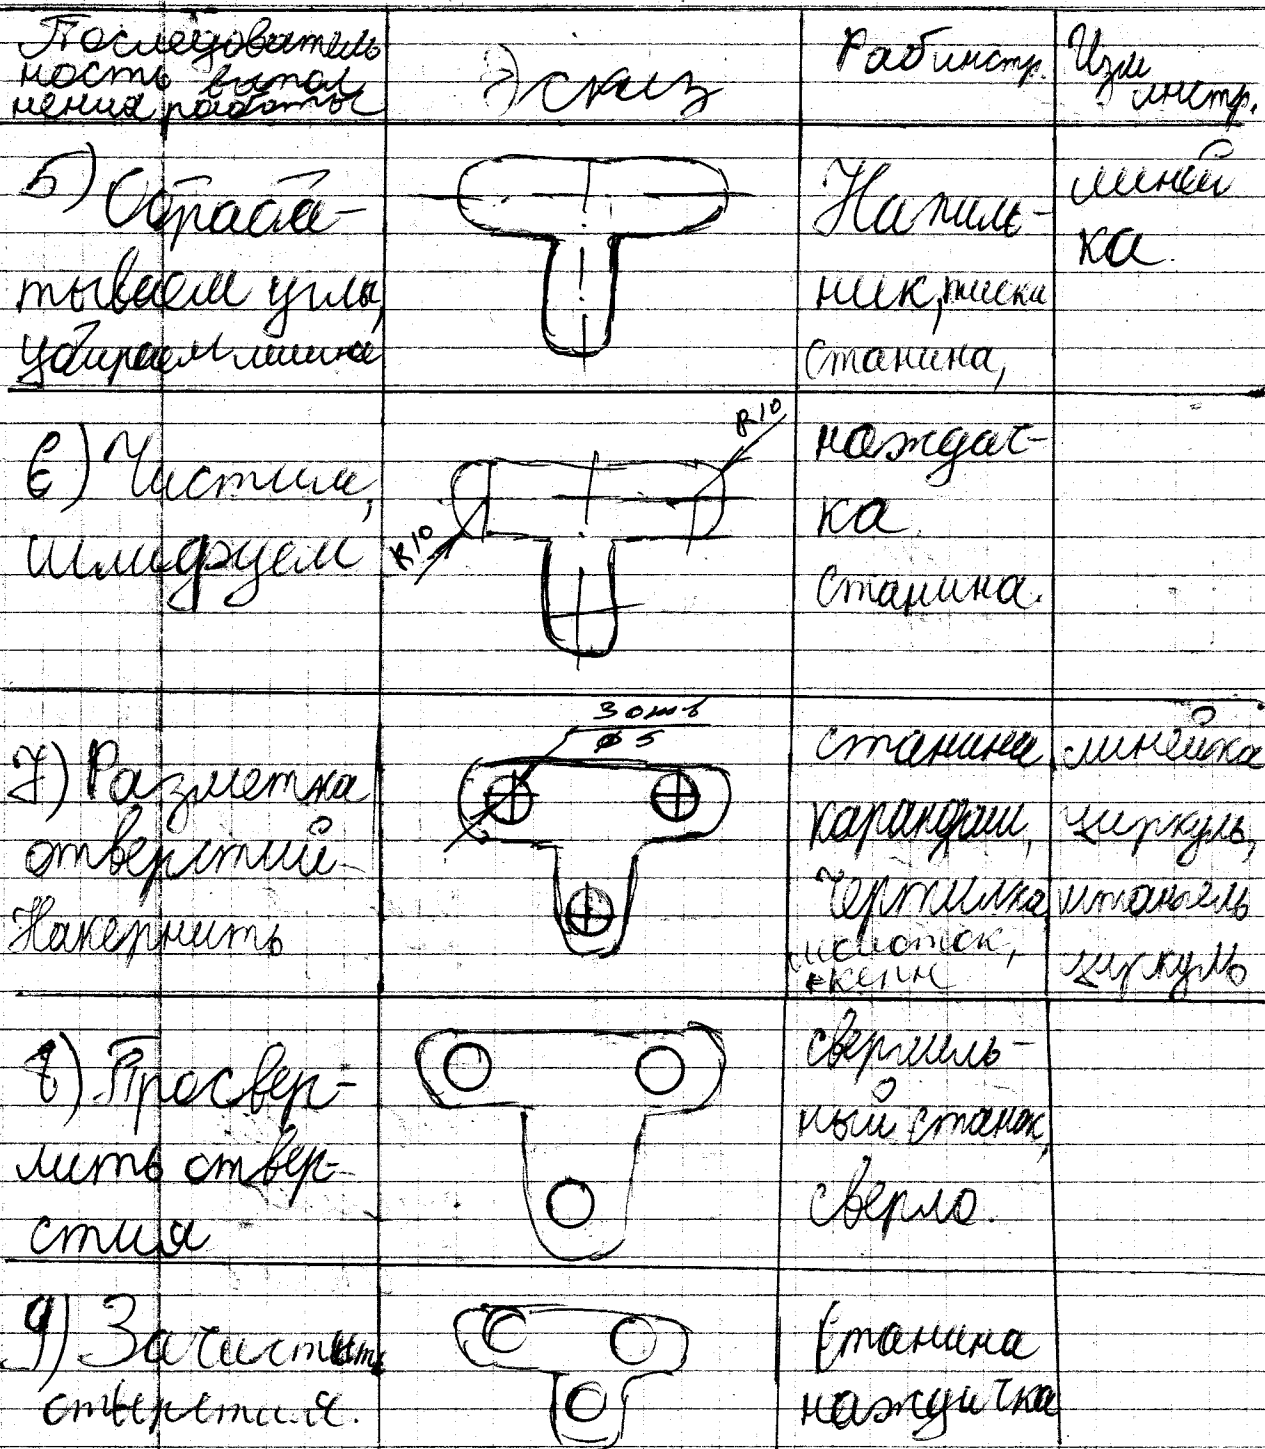 Последователь
ность выпол
нения работы
Эскиз
Раб инстр.
Изм
инстр.
5) Обраба-
тываем углы,
убираем лишне
Напиль-
ник, тиски
станина,
линей
ка.
6) Чистим,
шлифуем
R10
R10
наждач-
ка.
станина.
7) Разметка
отверстий
Накернить
3 отв
ø 5
станина
карандаш,
чертилка
молоток,
керн
линейка
циркуль,
штангель
циркуль
8) Просвер-
лить отвер-
стия
сверлиль-
ный станок,
сверло.
9) Зачистить
отверстия.
Станина
наждачка